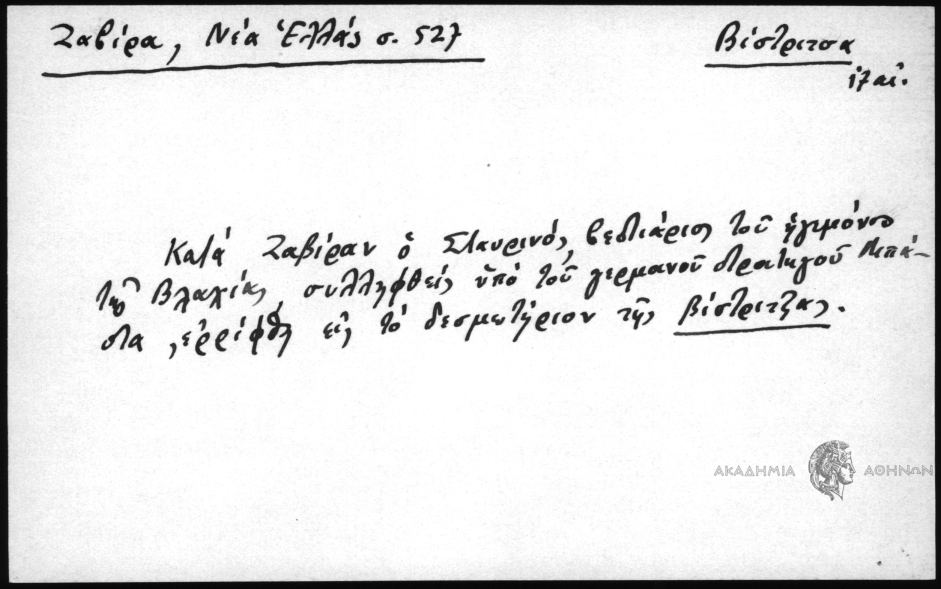 Ζαβίρα, Νέα Ἑλλάς σ. 527
Βίστριτσα
ιζαί.
Κατά Ζαβίραν ὁ Σταυρινός, βεστιάριος τοῦ ἡγεμόνος
τῆς Βλαχίας, συλληφθείς ὑπό τοῦ γερμανοῦ στρατηγοῦ Μπά-
στα, ἐρρίφθη εἰς τό δεσμωτήριον τῆς Βίστριτζας.
ΑΚΑΔΗΜΙΑ ΑΘΗΝΩΝ